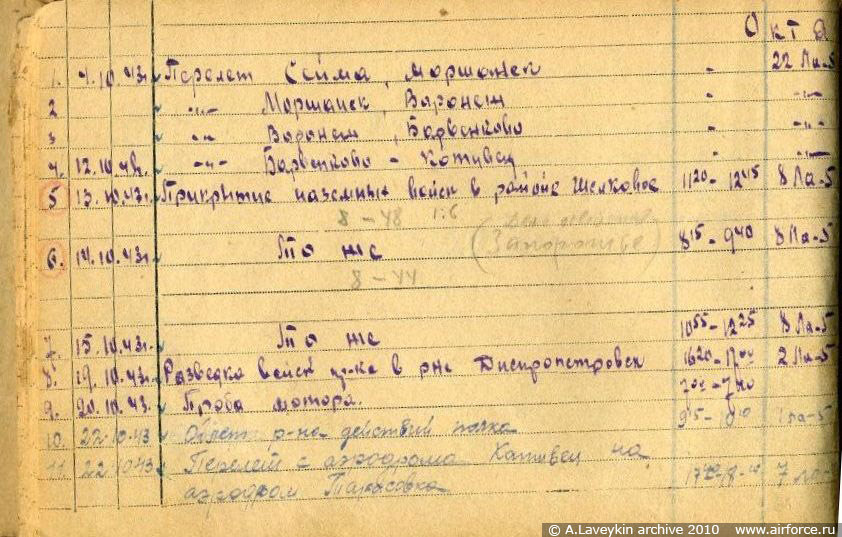 Октя
1. 7.10.43г. Перелет Сейма, Моршанск - 22 Ла-5
2 -"- Моршанск, Воронеш - -"-
3 -"- Воронеш, Барвенково - -"-
4. 12.10.43г. -"- Барвенково - Котивец -"-
5 13.10.43г. Прикрытие наземных войск в районе Шелковое 11 20 - 12 45 8 Ла-5
8 - 48 1:6
6. 14.10.43г. То же (Запорожье) 8 15 - 9 40 8 Ла-5
8 - 44
7. 15.10.43г. То же 10 55 - 12 25 8 Ла-5
8. 19.10.43г. Разведка войск пр-ка в р-не Днепропетровск 16 20 - 17 00 2 Ла-5
9. 20.10.43. Проба мотора. 7 00 - 7 40
10. 22.10.43 Облет р-на действий полка 9 15 - Ла-5
11 22.10.43 Перелет с аэродрома Котивец на
аэродром Тарасовка 7 Ла-
© A.Laveykin archive 2010 www.airforce.ru